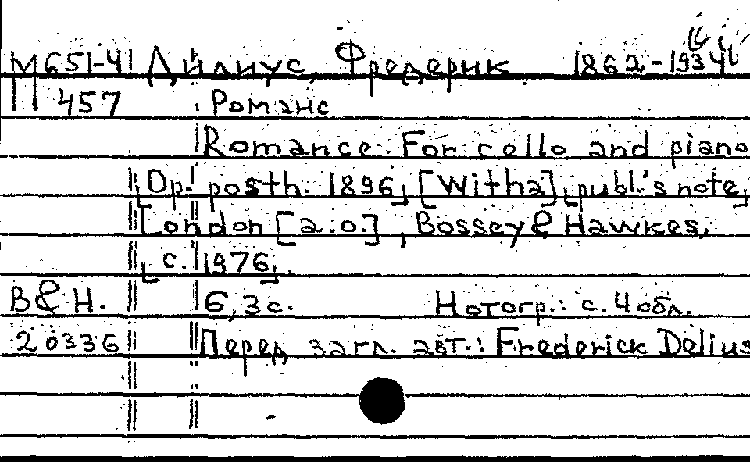 М651-41 Дилиус, Фредерик 1862-1934
П 457 Романс
Romance. For cello and piano
Op. posth. 1896, [With a] publ.'s note,
London [a.o.], Bossey & Hawkes,
c. 1976.
B&H. 6,3с. Нотогр.: с. 4 обл.
20336 Перед загл. авт.: Frederick Delius